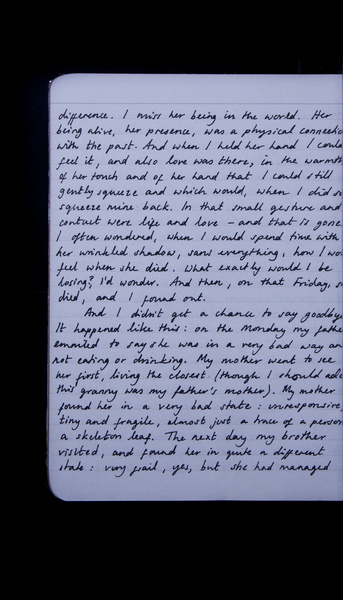 difference. I miss her being in the world. Her
being alive, her presence, was a physical connectio
with the past. And when I held her hand I could
feel it, and also love was there, in the warmth
of her touch and of her hand that I could still
gently squeeze and which would, when I did so
squeeze mine back. In that small gesture and
contact were life and love – and that is gone
I often wondered, when I would spend time with
her wrinkled shadow, sans everything, how I wou
feel when she died. What exactly would I be
losing? I'd wonder. And then, on that Friday, s
died, and I found out.
And I didn't get a chance to say goodbye
It happened like this: on the Monday my fathe
emailed to say she was in a very bad way an
not eating or drinking. My mother went to see
her first, living the closest (though I should add
this granny was my father's mother). My mother
found her in a very bad state: unresponsive,
tiny and fragile, almost just a trace of a person
a skeleton leaf. The next day my brother
visited, and found her in quite a different
state: very frail, yes, but she had managed